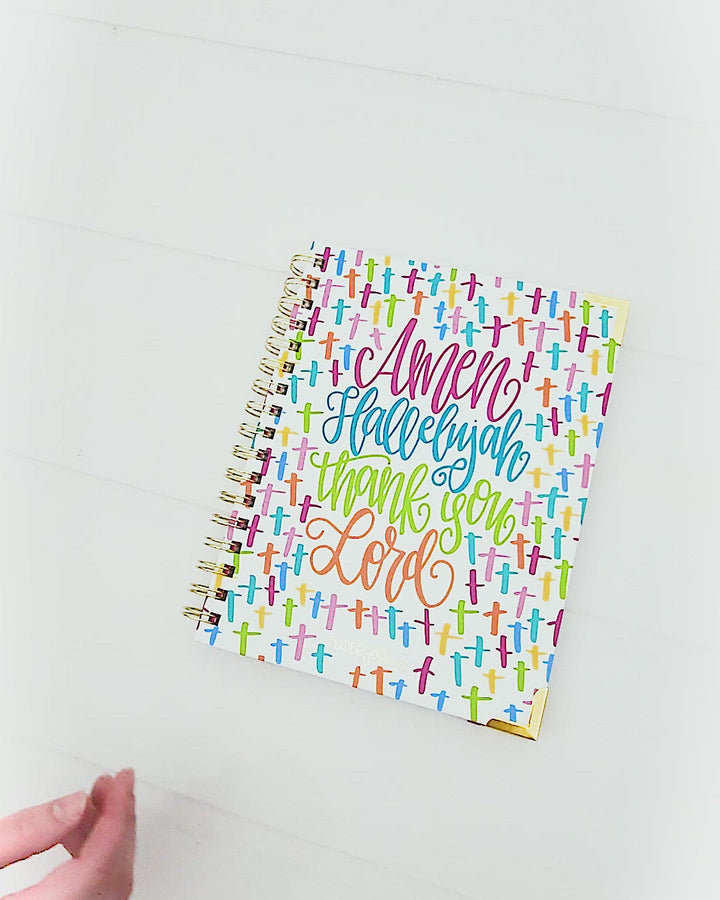 Amen
Hallelujah
thank you
Lord